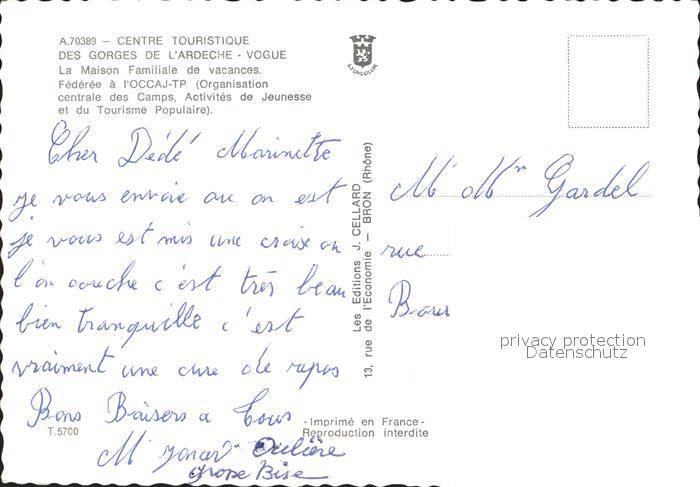 A.70389 – CENTRE TOURISTIQUE
DES GORGES DE L'ARDECHE - VOGUE
La Maison Familiale de vacances.
Fédérée à l'OCCAJ-TP (Organisation
centrale des Camps, Activités de Jeunesse
et du Tourisme Populaire).
LYONCOLOR
Cher Dédé Marinette
je vous envoie ou on est
je vous est mis une croise ou
l'on couche c'est très beau
bien tranquille c'est
vraiment une cure de repos
Bons Baisers a tous
T.5700
M
grosse Bise
Les Editions J. CELLARD
13, rue de l'Economie – BRON (Rhône)
- Imprimé en France -
Reproduction interdite
M Mm Gardel
rue
Bour
privacy protection
Datenschutz